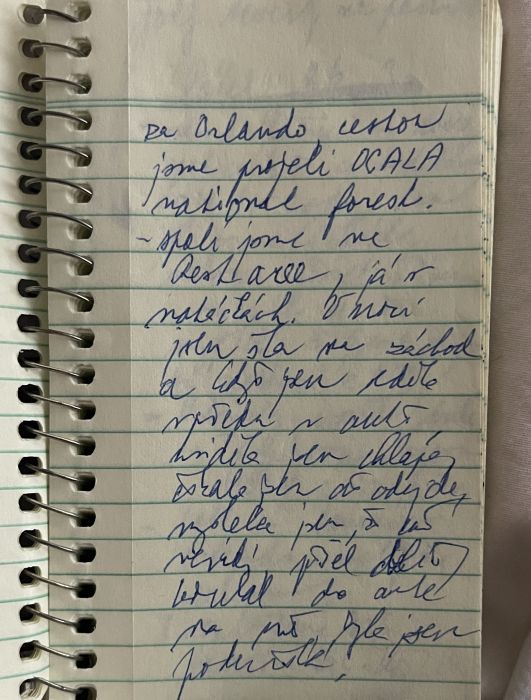 za Orlando, cestou
jsme projeli OCALA
national forest.
- spali jsme na
Rest aree, já v
natáčkách. V noci
jsem šla na záchod
a když jsem
v autě,
viděla jsem chlapa,
čekala jsem až odejde,
jsem, že mě
nevidí, přišel
koukal do auta
na mě, byla jsem